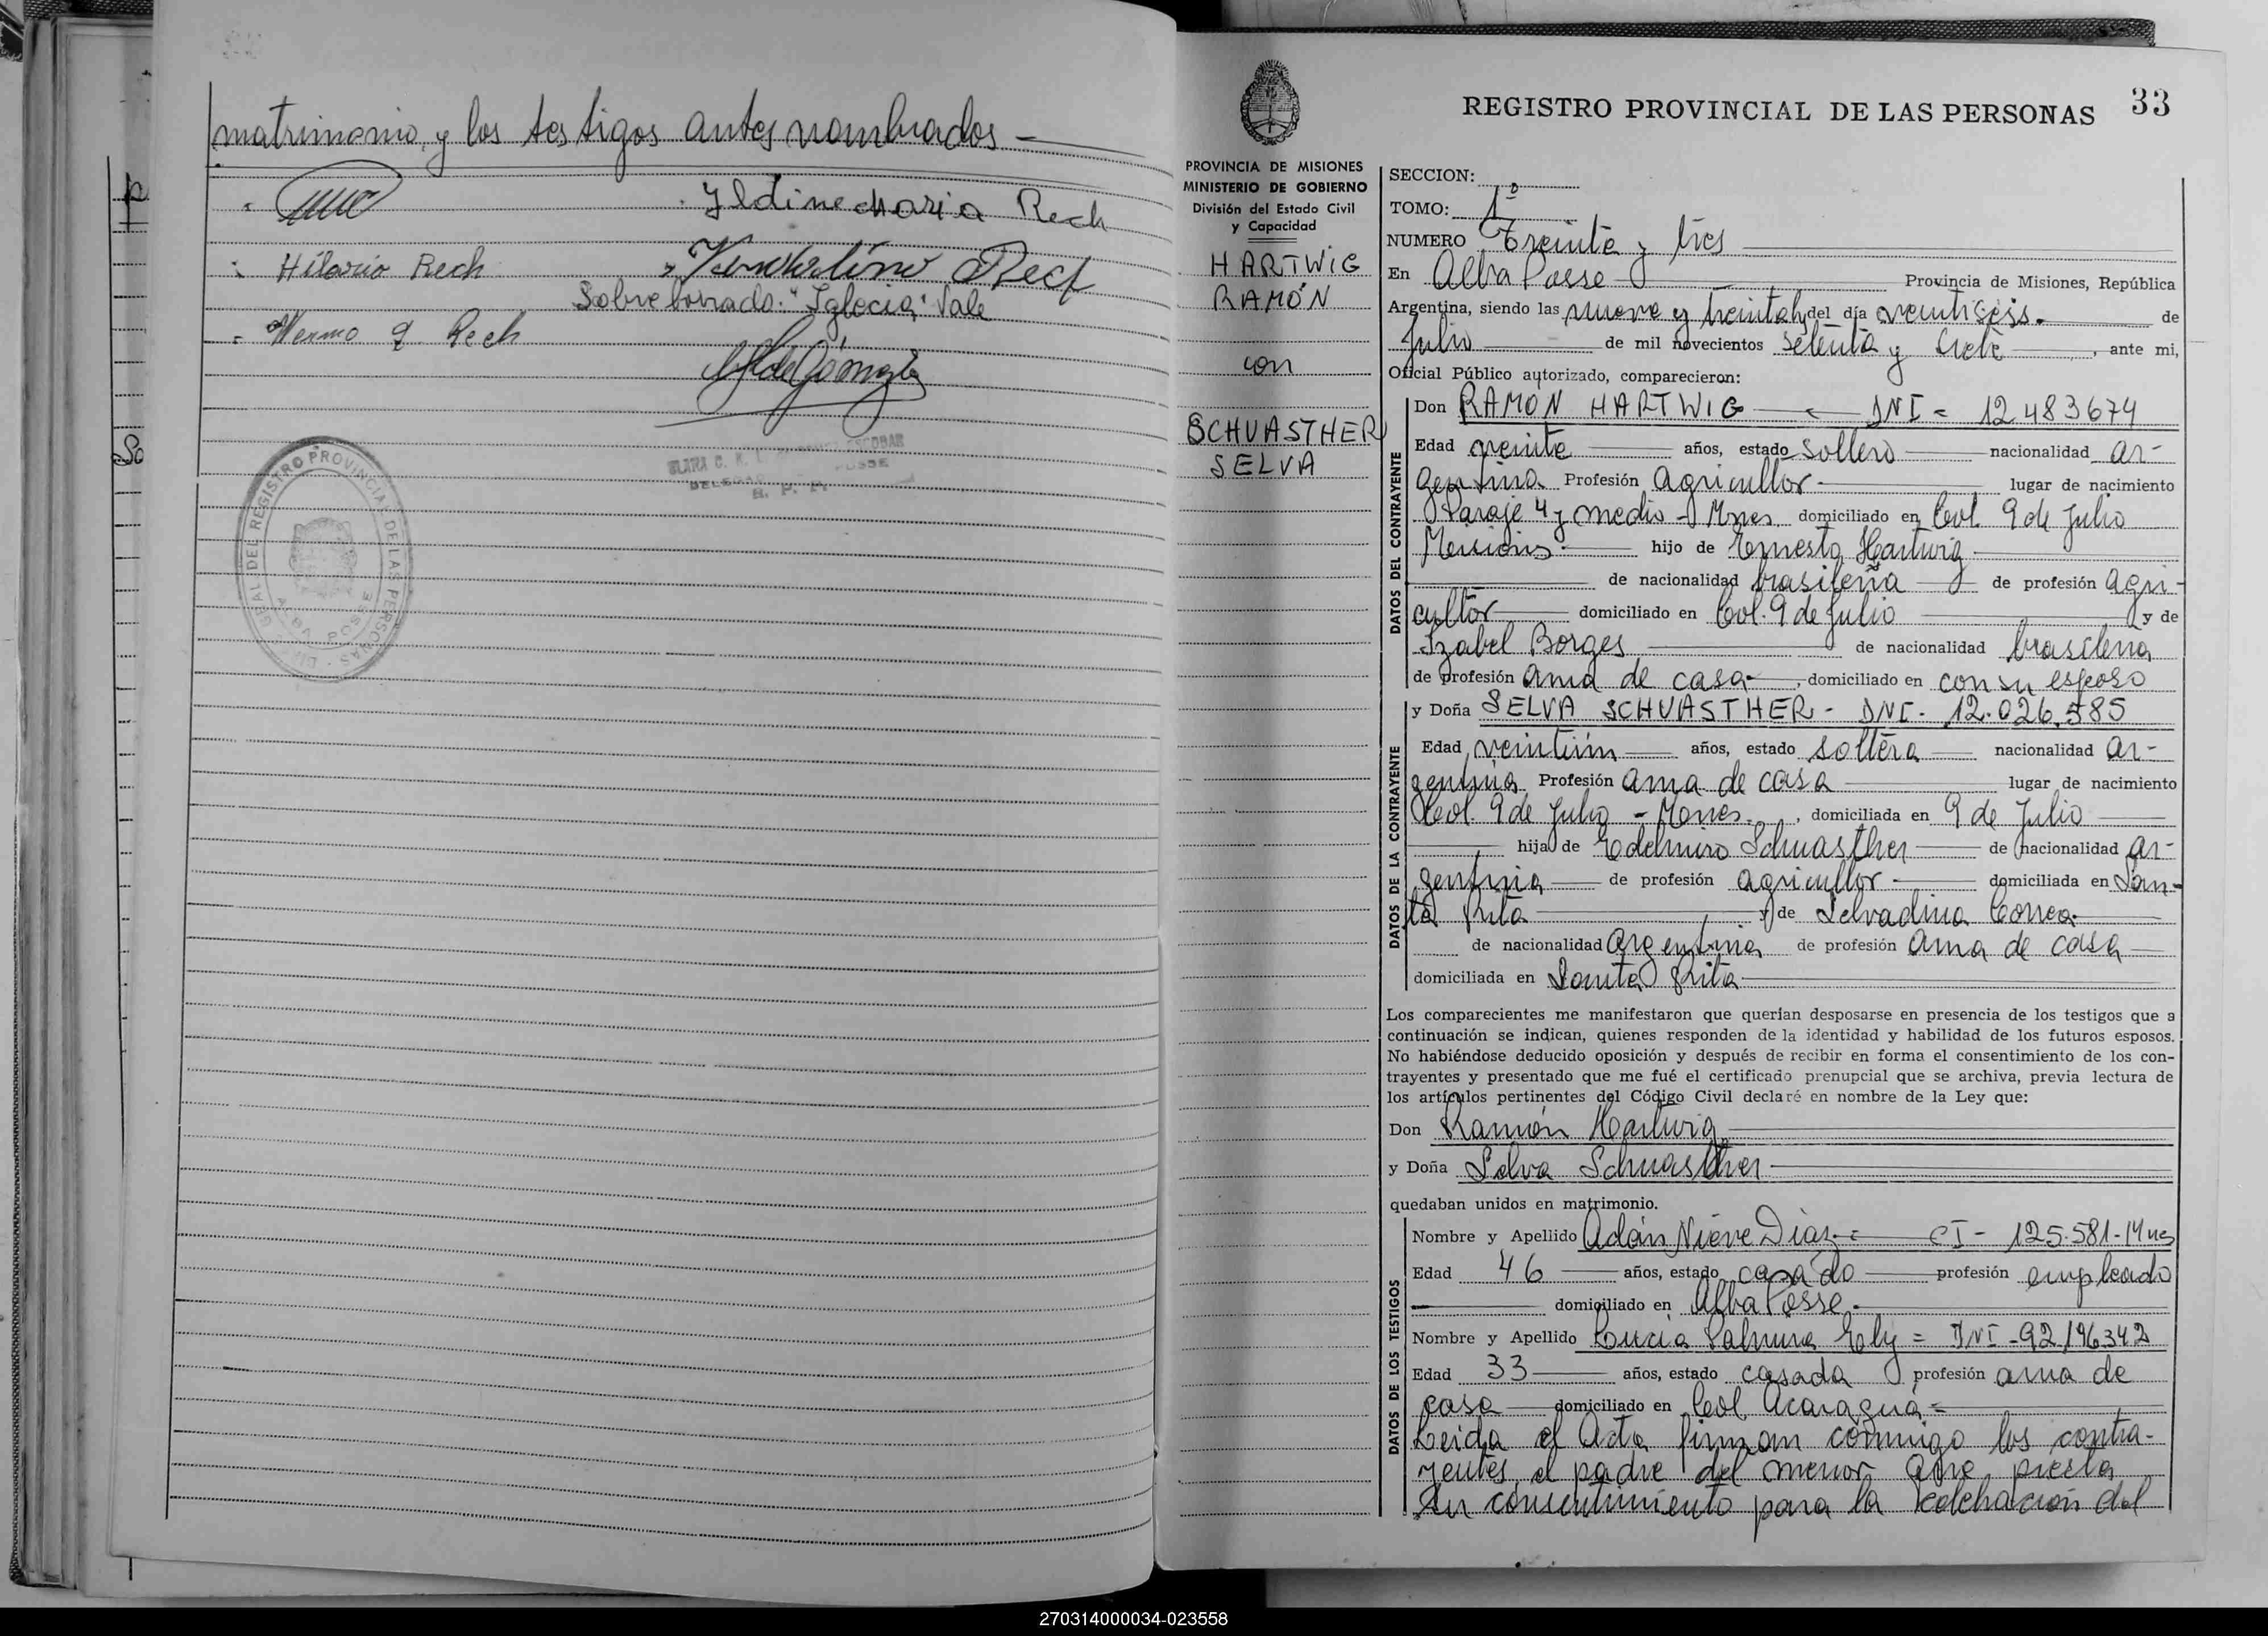 matrimonio y los testigos antes nombrados —
Yldine Maria Rech
Hilario Rech
Rech
Sobre borrado: "Iglecia" Vale
Wermo Rech
DEL REGISTRO PROVINCIAL DE LAS PERSONAS
ALBA POSSE
ESCOBAR
POSSE
R. P. P.
33
REGISTRO PROVINCIAL DE LAS PERSONAS
PROVINCIA DE MISIONES
MINISTERIO DE GOBIERNO
División del Estado Civil
y Capacidad
HARTWIG
RAMÓN
con
SCHUASTHER
SELVA
SECCION:
TOMO: 1º
NUMERO Treinta y tres
En Alba Posse Provincia de Misiones, República
Argentina, siendo las nueve y treinta hs del día veintiséis. de
Julio de mil novecientos setenta y siete, ante mi,
Oficial Público autorizado, comparecieron:
DATOS DEL CONTRAYENTE
Don RAMON HARTWIG — DNI = 12483674
Edad veinte años, estado soltero nacionalidad ar-
gentina Profesión Agricultor lugar de nacimiento
Paraje 4 y medio - Mnes domiciliado en Col 9 de Julio
Misiones hijo de Ernesto Hartwig
de nacionalidad brasileña de profesión agri-
cultor domiciliado en Col. 9 de Julio y de
Izabel Borges de nacionalidad brasilena
de profesión ama de casa, domiciliado en con su esposo
DATOS DE LA CONTRAYENTE
y Doña SELVA SCHUASTHER - DNI - 12.026.585
Edad veintiún años, estado soltera nacionalidad ar-
gentina Profesión ama de casa lugar de nacimiento
Col. 9 de Julio - Mones., domiciliada en 9 de Julio
hija de Edelmiro Schuasther de nacionalidad ar-
gentina de profesión agricultor domiciliada en San-
ta Rita y de Selvadina Correa
de nacionalidad argentina de profesión ama de casa
domiciliada en Santa Rita
Los comparecientes me manifestaron que querían desposarse en presencia de los testigos que a
continuación se indican, quienes responden de la identidad y habilidad de los futuros esposos.
No habiéndose deducido oposición y después de recibir en forma el consentimiento de los con-
trayentes y presentado que me fué el certificado prenupcial que se archiva, previa lectura de
los artículos pertinentes del Código Civil declaré en nombre de la Ley que:
Don Ramón Hartwig
y Doña Selva Schuasther
quedaban unidos en matrimonio.
DATOS DE LOS TESTIGOS
Nombre y Apellido Adán Nieve Diaz = CI - 125.581 - Mnes
Edad 46 años, estado casado profesión empleado
domiciliado en Alba Posse.
Nombre y Apellido Lucia Palmira Ely = DNI - 92196342
Edad 33 años, estado casada profesión ama de
casa domiciliado en Col. Acaragua =
Leida el Acta firman conmigo los contra-
yentes, el padre del menor que presta
su consentimiento para la celebración del
270314000034-023558